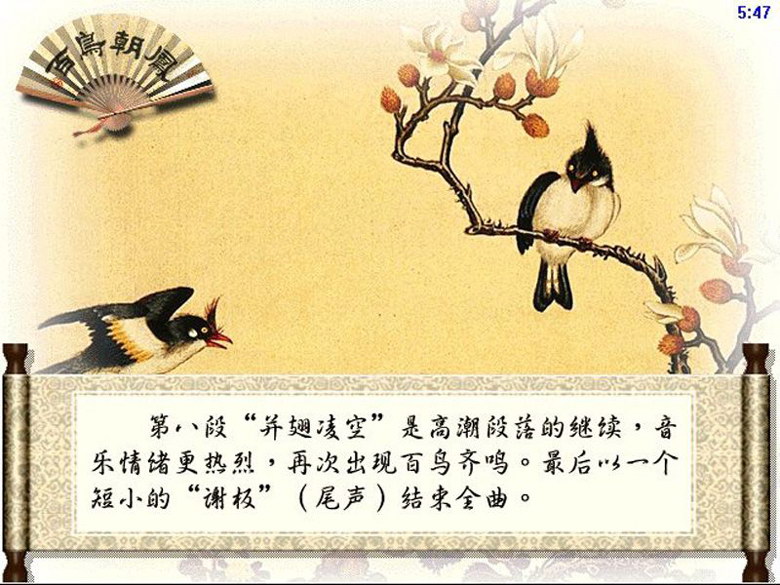 5:47
百鸟朝凤
第八段“并翅凌空”是高潮段落的继续，音
乐情绪更热烈，再次出现百鸟齐鸣。最后以一个
短小的“谢板”（尾声）结束全曲。